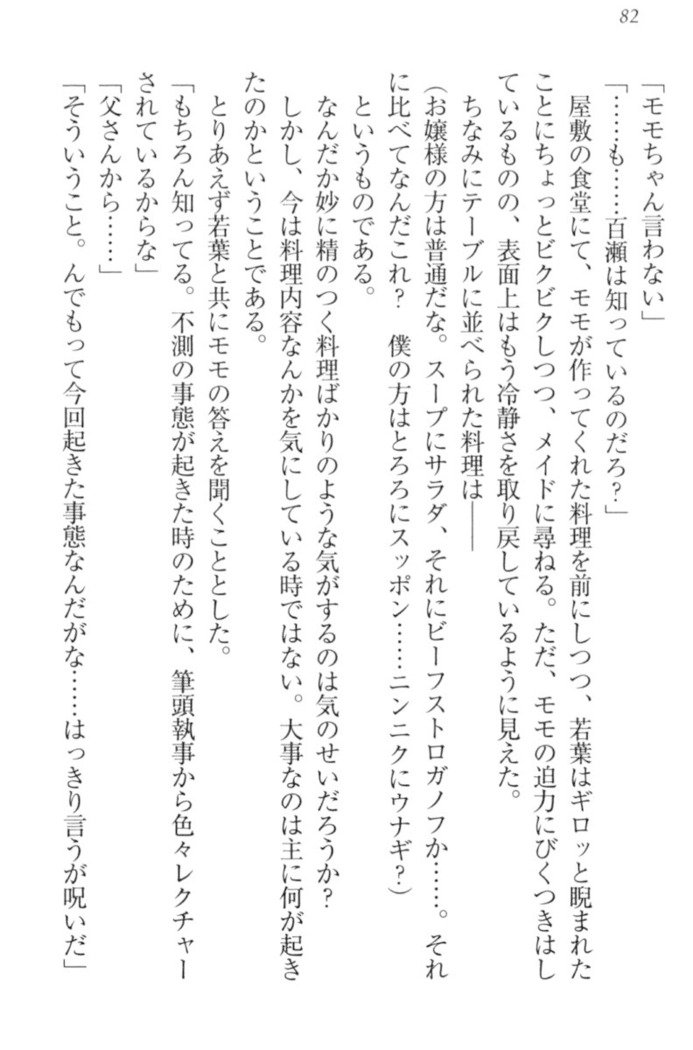 82
「モモちゃん言わない」
「……も……百瀬は知っているのだろ？」
　屋敷の食堂にて、モモが作ってくれた料理を前にしつつ、若葉はギロッと睨まれた
ことにちょっとビクビクしつつ、メイドに尋ねる。ただ、モモの迫力にびくつきはし
ているものの、表面上はもう冷静さを取り戻しているように見えた。
　ちなみにテーブルに並べられた料理は――
（お嬢様の方は普通だな。スープにサラダ、それにビーフストロガノフか……。それ
に比べてなんだこれ？　僕の方はとろろにスッポン……ニンニクにウナギ？）
というものである。
　なんだか妙に精のつく料理ばかりのような気がするのは気のせいだろうか？
　しかし、今は料理内容なんかを気にしている時ではない。大事なのは主に何が起き
たのかということである。
　とりあえず若葉と共にモモの答えを聞くこととした。
「もちろん知ってる。不測の事態が起きた時のために、筆頭執事から色々レクチャー
されているからな」
「父さんから……」
「そういうこと。んでもって今回起きた事態なんだがな……はっきり言うが呪いだ」